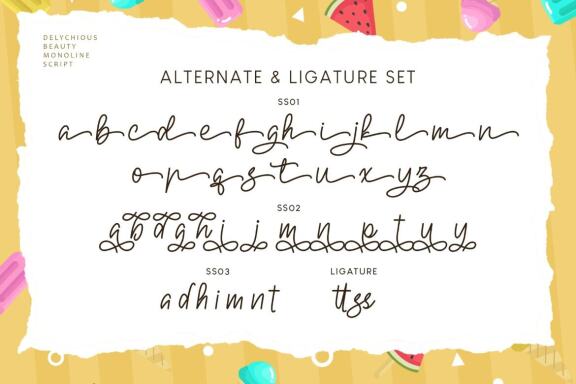 DELYCHIOUS
BEAUTY
MONOLINE
SCRIPT
ALTERNATE & LIGATURE SET
SS01
abcdefghijklmn
opqstuxyz
SS02
abdghijmnptuy
SS03 LIGATURE
adhimnt ttss